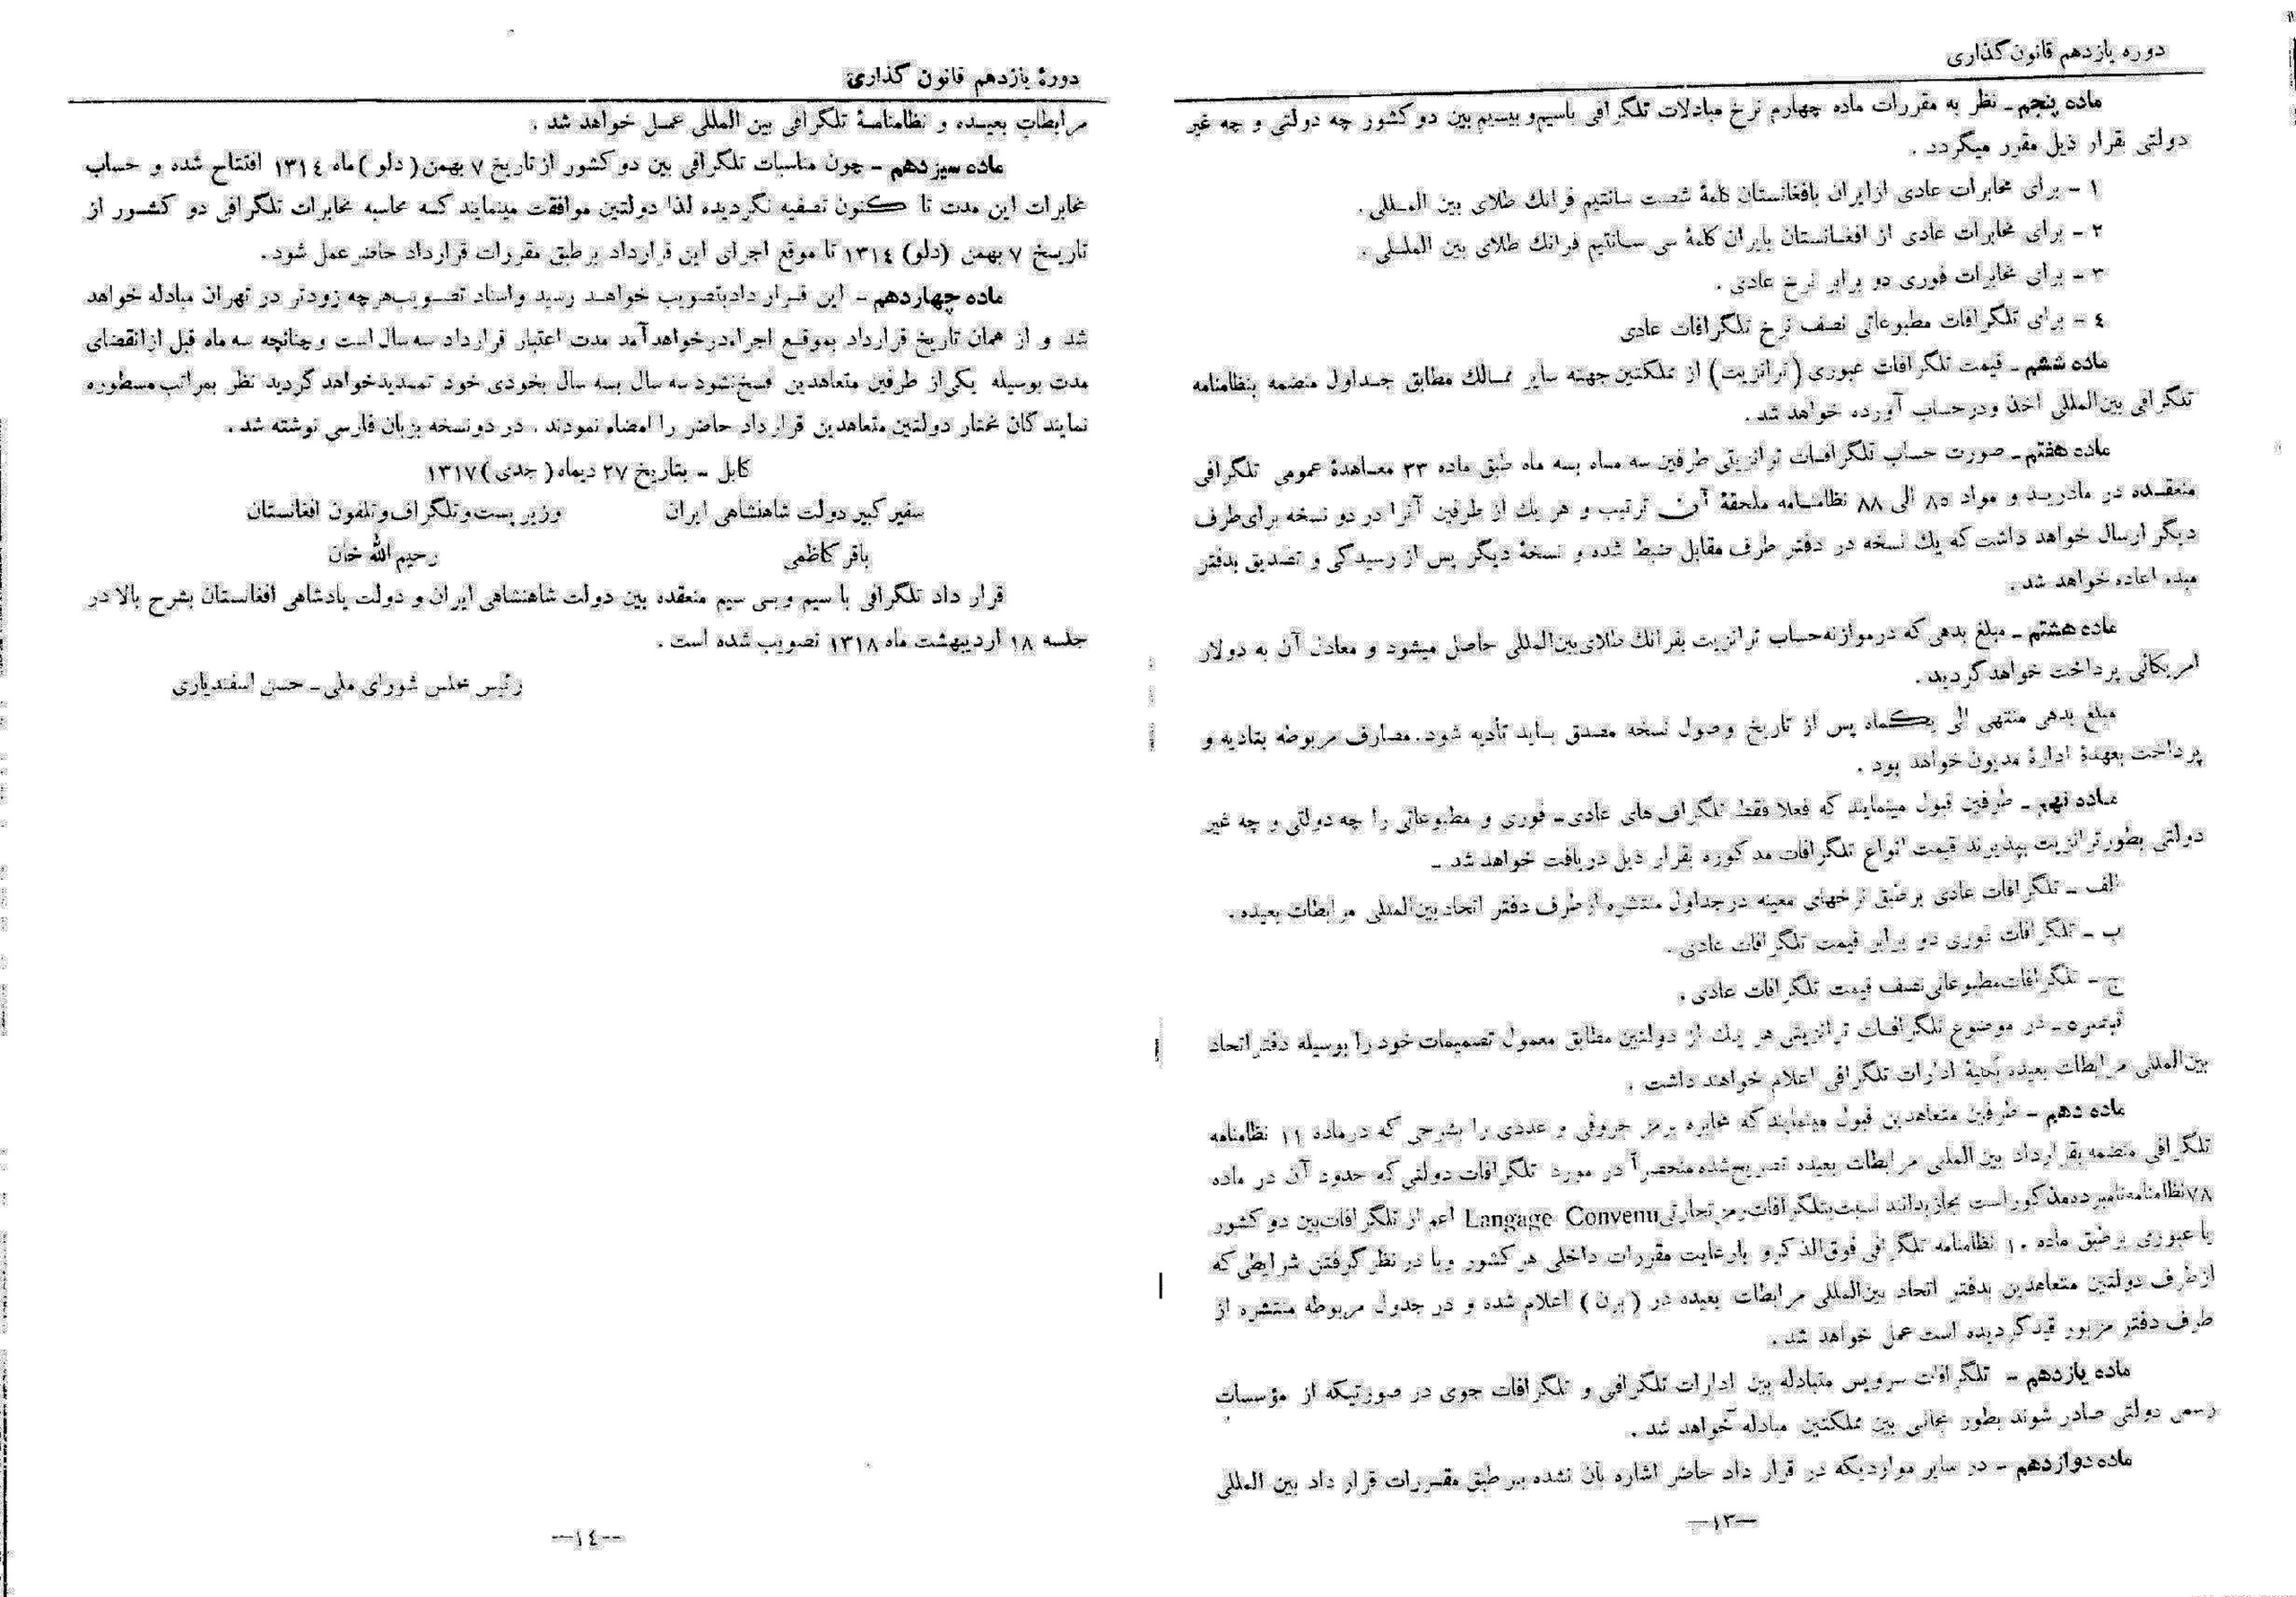 دوره یازدهم قانون‌گذاری
ماده پنجم ـ نظر به مقررات ماده چهارم نرخ مبادلات تلگرافی باسیم و بیسیم بین دو کشور چه دولتی و چه غیر
دولتی بقرار ذیل مقرر میگردد .
۱ ـ برای مخابرات عادی از ایران بافغانستان کلمهٔ شصت سانتیم فرانک طلای بین المللی .
۲ ـ برای مخابرات عادی از افغانستان بایران کلمهٔ سی سانتیم فرانک طلای بین المللی .
۳ ـ برای مخابرات فوری دو برابر نرخ عادی .
٤ ـ برای تلگرافات مطبوعاتی نصف نرخ تلگرافات عادی
ماده ششم ـ قیمت تلگرافات عبوری (ترانزیت) از مملکتین جهته سایر ممالک مطابق جداول منضمه بنظامنامه
تلگرافی بین‌المللی اخذ و در حساب آورده خواهد شد .
ماده هفتم ـ صورت حساب تلگرافات ترانزیتی طرفین سه ماه بسه ماه طبق ماده ۳۳ معاهدهٔ عمومی تلگرافی
منعقده در مادرید و مواد ۸۵ الی ۸۸ نظامنامه ملحقهٔ آن ترتیب و هر یک از طرفین آنرا در دو نسخه برای طرف
دیگر ارسال خواهد داشت که یک نسخه در دفتر طرف مقابل ضبط شده و نسخهٔ دیگر پس از رسیدگی و تصدیق بدفتر
مبده اعاده خواهد شد .
ماده هشتم ـ مبلغ بدهی که در موازنه حساب ترانزیت بفرانک طلای بین‌المللی حاصل میشود و معادل آن به دولار
امریکائی پرداخت خواهد گردید .
مبلغ بدهی منتهی الی یکماه پس از تاریخ وصول نسخه مصدق باید تأدیه شود . مصارف مربوطه بتادیه و
پرداخت بعهدهٔ ادارهٔ مدیون خواهد بود .
ماده نهم ـ طرفین قبول مینمایند که فعلا فقط تلگراف های عادی ـ فوری و مطبوعاتی را چه دولتی و چه غیر
دولتی بطور ترانزیت بپذیرند قیمت انواع تلگرافات مذکوره بقرار ذیل دریافت خواهد شد ـ
الف ـ تلگرافات عادی برطبق نرخهای معینه در جداول منتشره از طرف دفتر اتحاد بین‌المللی مرابطات بعیده .
ب ـ تلگرافات فوری دو برابر قیمت تلگرافات عادی .
ج ـ تلگرافات مطبوعاتی نصف قیمت تلگرافات عادی .
تبصره ـ در موضوع تلگرافات ترانزیتی هر یک از دولتین مطابق معمول تصمیمات خود را بوسیله دفتر اتحاد
بین‌المللی مرابطات بعیده بکلیهٔ ادارات تلگرافی اعلام خواهند داشت .
ماده دهم ـ طرفین متعاهدین قبول مینمایند که مخابره برمز حروفی و عددی را بشرحی که در ماده ۱۱ نظامنامه
تلگرافی منضمه بقرارداد بین المللی مرابطات بعیده تصریح شده منحصراً در مورد تلگرافات دولتی که حدود آن در ماده
۷۸ نظامنامه نامبرده مذکور است مجاز بدانند نسبت بتلگرافات رمز تجارتی Langage Convenu اعم از تلگرافات بین دو کشور
یا عبوری برطبق ماده ۱۰ نظامنامه تلگرافی فوق‌الذکر و بارعایت مقررات داخلی هر کشور و با در نظر گرفتن شرایطی که
از طرف دولتین متعاهدین بدفتر اتحاد بین‌المللی مرابطات بعیده در (برن) اعلام شده و در جدول مربوطه منتشره از
طرف دفتر مزبور قید گردیده است عمل خواهد شد .
ماده یازدهم ـ تلگرافات سرویس متبادله بین ادارات تلگرافی و تلگرافات جوی در صورتیکه از مؤسسات
رسمی دولتی صادر شوند بطور مجانی بین مملکتین مبادله خواهد شد .
ماده دوازدهم ـ در سایر مواردیکه در قرار داد حاضر اشاره بآن نشده بر طبق مقررات قرار داد بین المللی
—۱۳—
دورهٔ یازدهم قانون گذاری
مرابطات بعیده و نظامنامهٔ تلگرافی بین المللی عمل خواهد شد .
ماده سیزدهم ـ چون مناسبات تلگرافی بین دو کشور از تاریخ ۷ بهمن (دلو) ماه ۱۳۱٤ افتتاح شده و حساب
مخابرات این مدت تا کنون تصفیه نگردیده لذا دولتین موافقت مینمایند که محاسبه مخابرات تلگرافی دو کشور از
تاریخ ۷ بهمن (دلو) ۱۳۱٤ تا موقع اجرای این قرارداد برطبق مقررات قرارداد حاضر عمل شود .
ماده چهاردهم ـ این قرار داد بتصویب خواهد رسید و اسناد تصویب هرچه زودتر در تهران مبادله خواهد
شد و از همان تاریخ قرارداد بموقع اجراء در خواهد آمد مدت اعتبار قرارداد سه سال است و چنانچه سه ماه قبل از انقضای
مدت بوسیله یکی از طرفین متعاهدین فسخ نشود سه سال بسه سال بخودی خود تمدید خواهد گردید نظر بمراتب مسطوره
نمایندگان مختار دولتین متعاهدین قرارداد حاضر را امضاء نمودند . در دو نسخه بزبان فارسی نوشته شد .
کابل ـ بتاریخ ۲۷ دیماه (جدی) ۱۳۱۷
سفیر کبیر دولت شاهنشاهی ایران وزیر پست و تلگراف و تلفون افغانستان
باقر کاظمی رحیم الله خان
قرار داد تلگرافی با سیم و بی سیم منعقده بین دولت شاهنشاهی ایران و دولت پادشاهی افغانستان بشرح بالا در
جلسه ۱۸ اردیبهشت ماه ۱۳۱۸ تصویب شده است .
رئیس مجلس شورای ملی ـ حسن اسفندیاری
—۱٤—